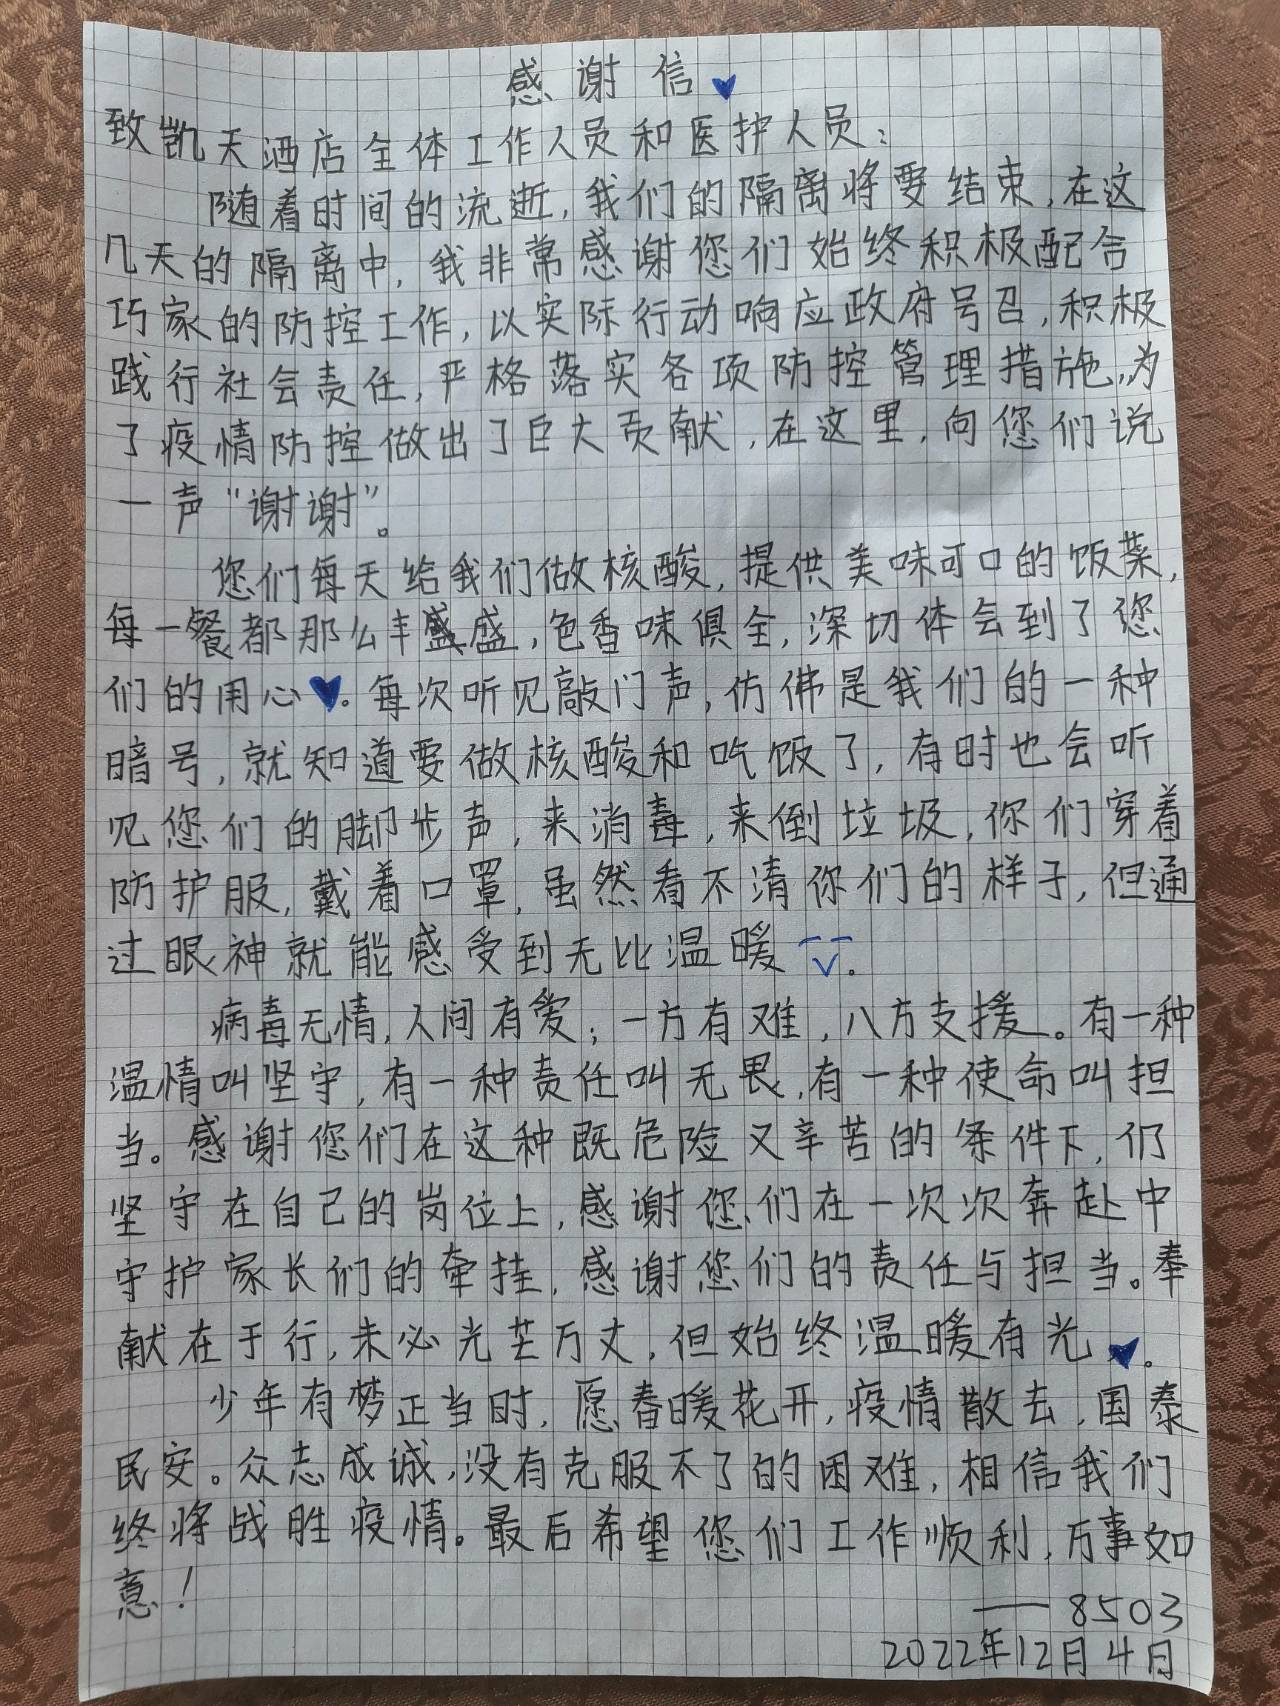 感谢信
致凯天酒店全体工作人员和医护人员：
随着时间的流逝，我们的隔离将要结束，在这
几天的隔离中，我非常感谢您们始终积极配合
巧家的防控工作，以实际行动响应政府号召，积极
践行社会责任，严格落实各项防控管理措施，为
了疫情防控做出了巨大贡献，在这里，向您们说
一声“谢谢”。
您们每天给我们做核酸，提供美味可口的饭菜，
每一餐都那么丰盛，色香味俱全，深切体会到了您
们的用心。每次听见敲门声，仿佛是我们的一种
暗号，就知道要做核酸和吃饭了，有时也会听
见您们的脚步声，来消毒，来倒垃圾，你们穿着
防护服，戴着口罩，虽然看不清你们的样子，但通
过眼神就能感受到无比温暖。
病毒无情，人间有爱；一方有难，八方支援。有一种
温情叫坚守，有一种责任叫无畏，有一种使命叫担
当。感谢您们在这种既危险又辛苦的条件下，仍
坚守在自己的岗位上，感谢您们在一次次奔赴中
守护家长们的牵挂，感谢您们的责任与担当。奉
献在于行，未必光芒万丈，但始终温暖有光。
少年有梦正当时，愿春暖花开，疫情散去，国泰
民安。众志成诚，没有克服不了的困难，相信我们
终将战胜疫情。最后希望您们工作顺利，万事如
意！
——8503
2022年12月4日